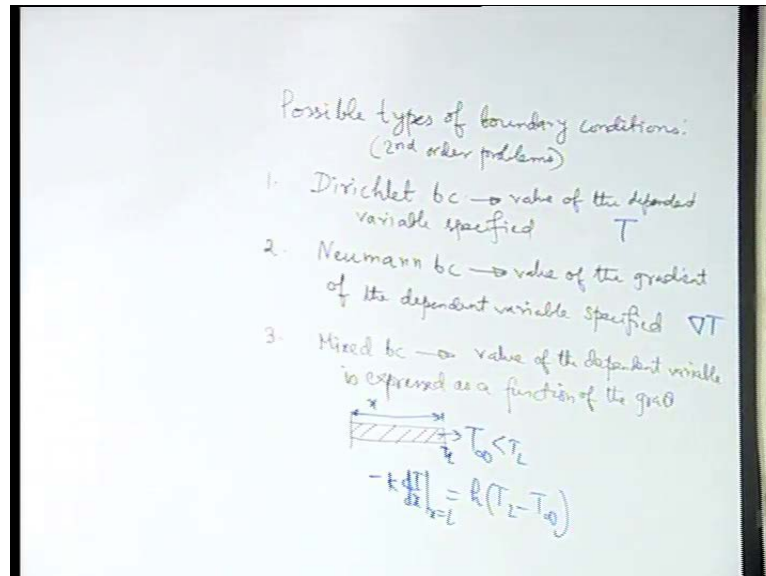 Possible types of boundary conditions:
(2nd order problems)
1. Dirichlet bc → value of the dependent
variable specified T
2. Neumann bc → value of the gradient
of the dependent variable specified ∇T
3. Mixed bc → value of the dependent variable
is expressed as a function of the grad
x
T_L → T_∞ < T_L
-k dT/dx|_{x=L} = h(T_L - T_∞)